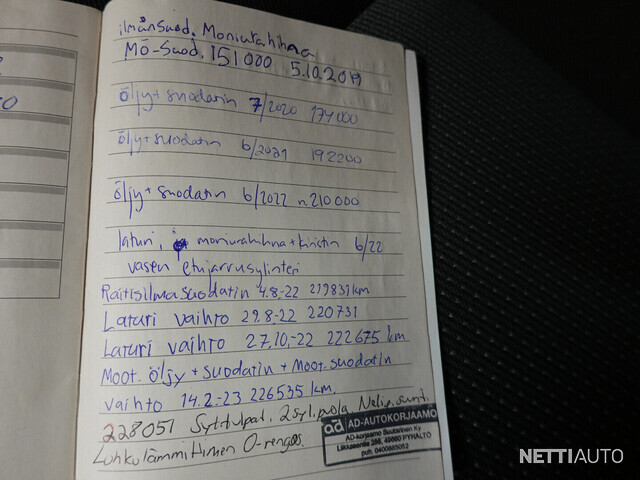 ilmansuod. Moniurahihna
Mö-Suod. 151 000 5.10.2019
öljy+suodatin 7/2020 174000
öljy+suodatin 6/2021 192200
öljy + suodatin 6/2022 n.210 000
laturi, moniurahihna+kiristin 6/22
vasen etujarrusylinteri
Raitisilmasuodatin 4.8.-22 219831 km
Laturi vaihto 29.8-22 220731
Laturi vaihto 27.10.-22 222675 km
Moot. öljy + suodatin + Moot. suodatin
vaihto 14.2.-23 226535 km.
228051 Sytytulpat, 2syl.puola,
Lohkolämmittimen O-rengas
ad AD-AUTOKORJAAMO
AD-korjaamo Suutarinen Ky
49660 PYHÄLTÖ
puh.
NETTIAUTO